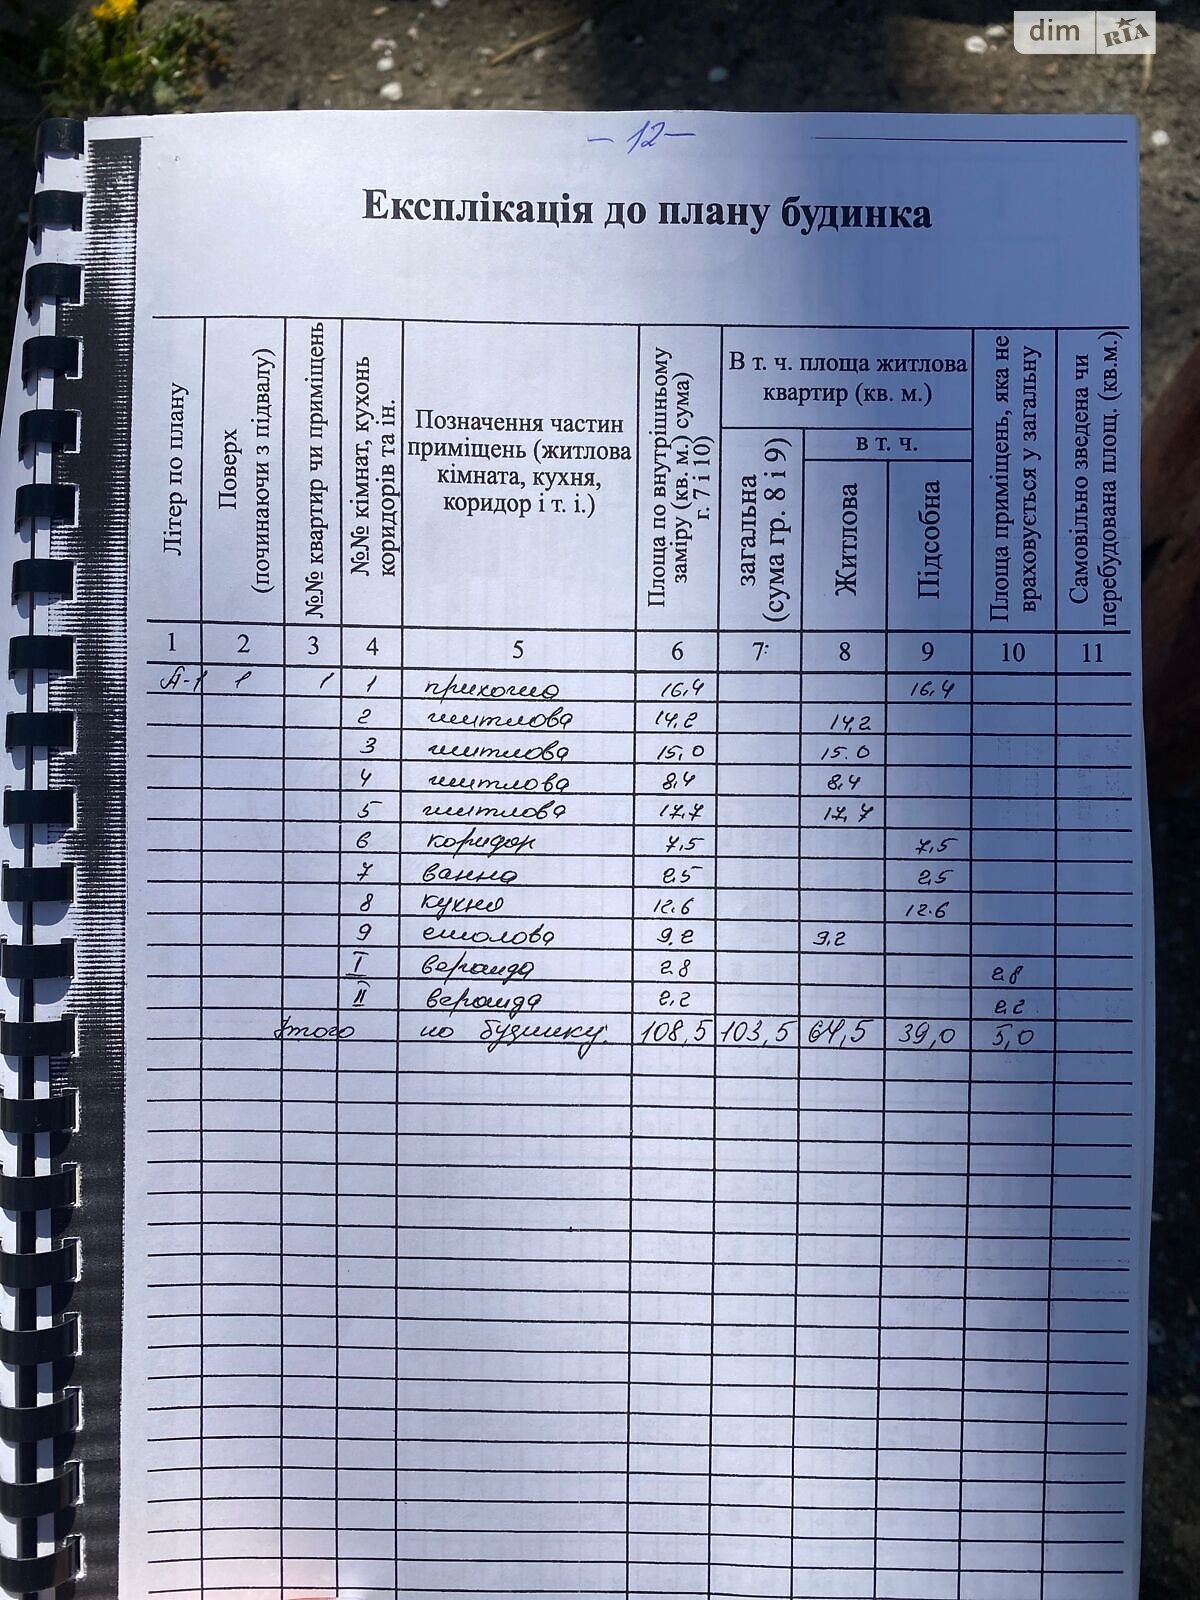 dim RIA
– 12 –
Експлікація до плану будинка
Літер по плану
Поверх
(починаючи з підвалу)
№№ квартир чи приміщень
№№ кімнат, кухонь
коридорів та ін.
Позначення частин
приміщень (житлова
кімната, кухня,
коридор і т. і.)
Площа по внутрішньому
заміру (кв. м.) сума)
г. 7 і 10)
В т. ч. площа житлова
квартир (кв. м.)
загальна
(сума гр. 8 і 9)
в т. ч.
Житлова
Підсобна
Площа приміщень, яка не
враховується у загальну
Самовільно зведена чи
перебудована площ. (кв.м.)
1 2 3 4 5 6 7: 8 9 10 11
А-1 1 1 1 прихожа 16,4 16,4
2 житлова 14,2 14,2
3 житлова 15,0 15.0
4 житлова 8,4 8,4
5 житлова 17,7 17,7
6 коридор 7,5 7,5
7 ванна 2,5 2,5
8 кухня 12.6 12.6
9 столова 9.2 9.2
I веранда 2.8 2.8
II веранда 2.2 2.2
Итого по будинку: 108,5 103,5 64,5 39,0 5,0